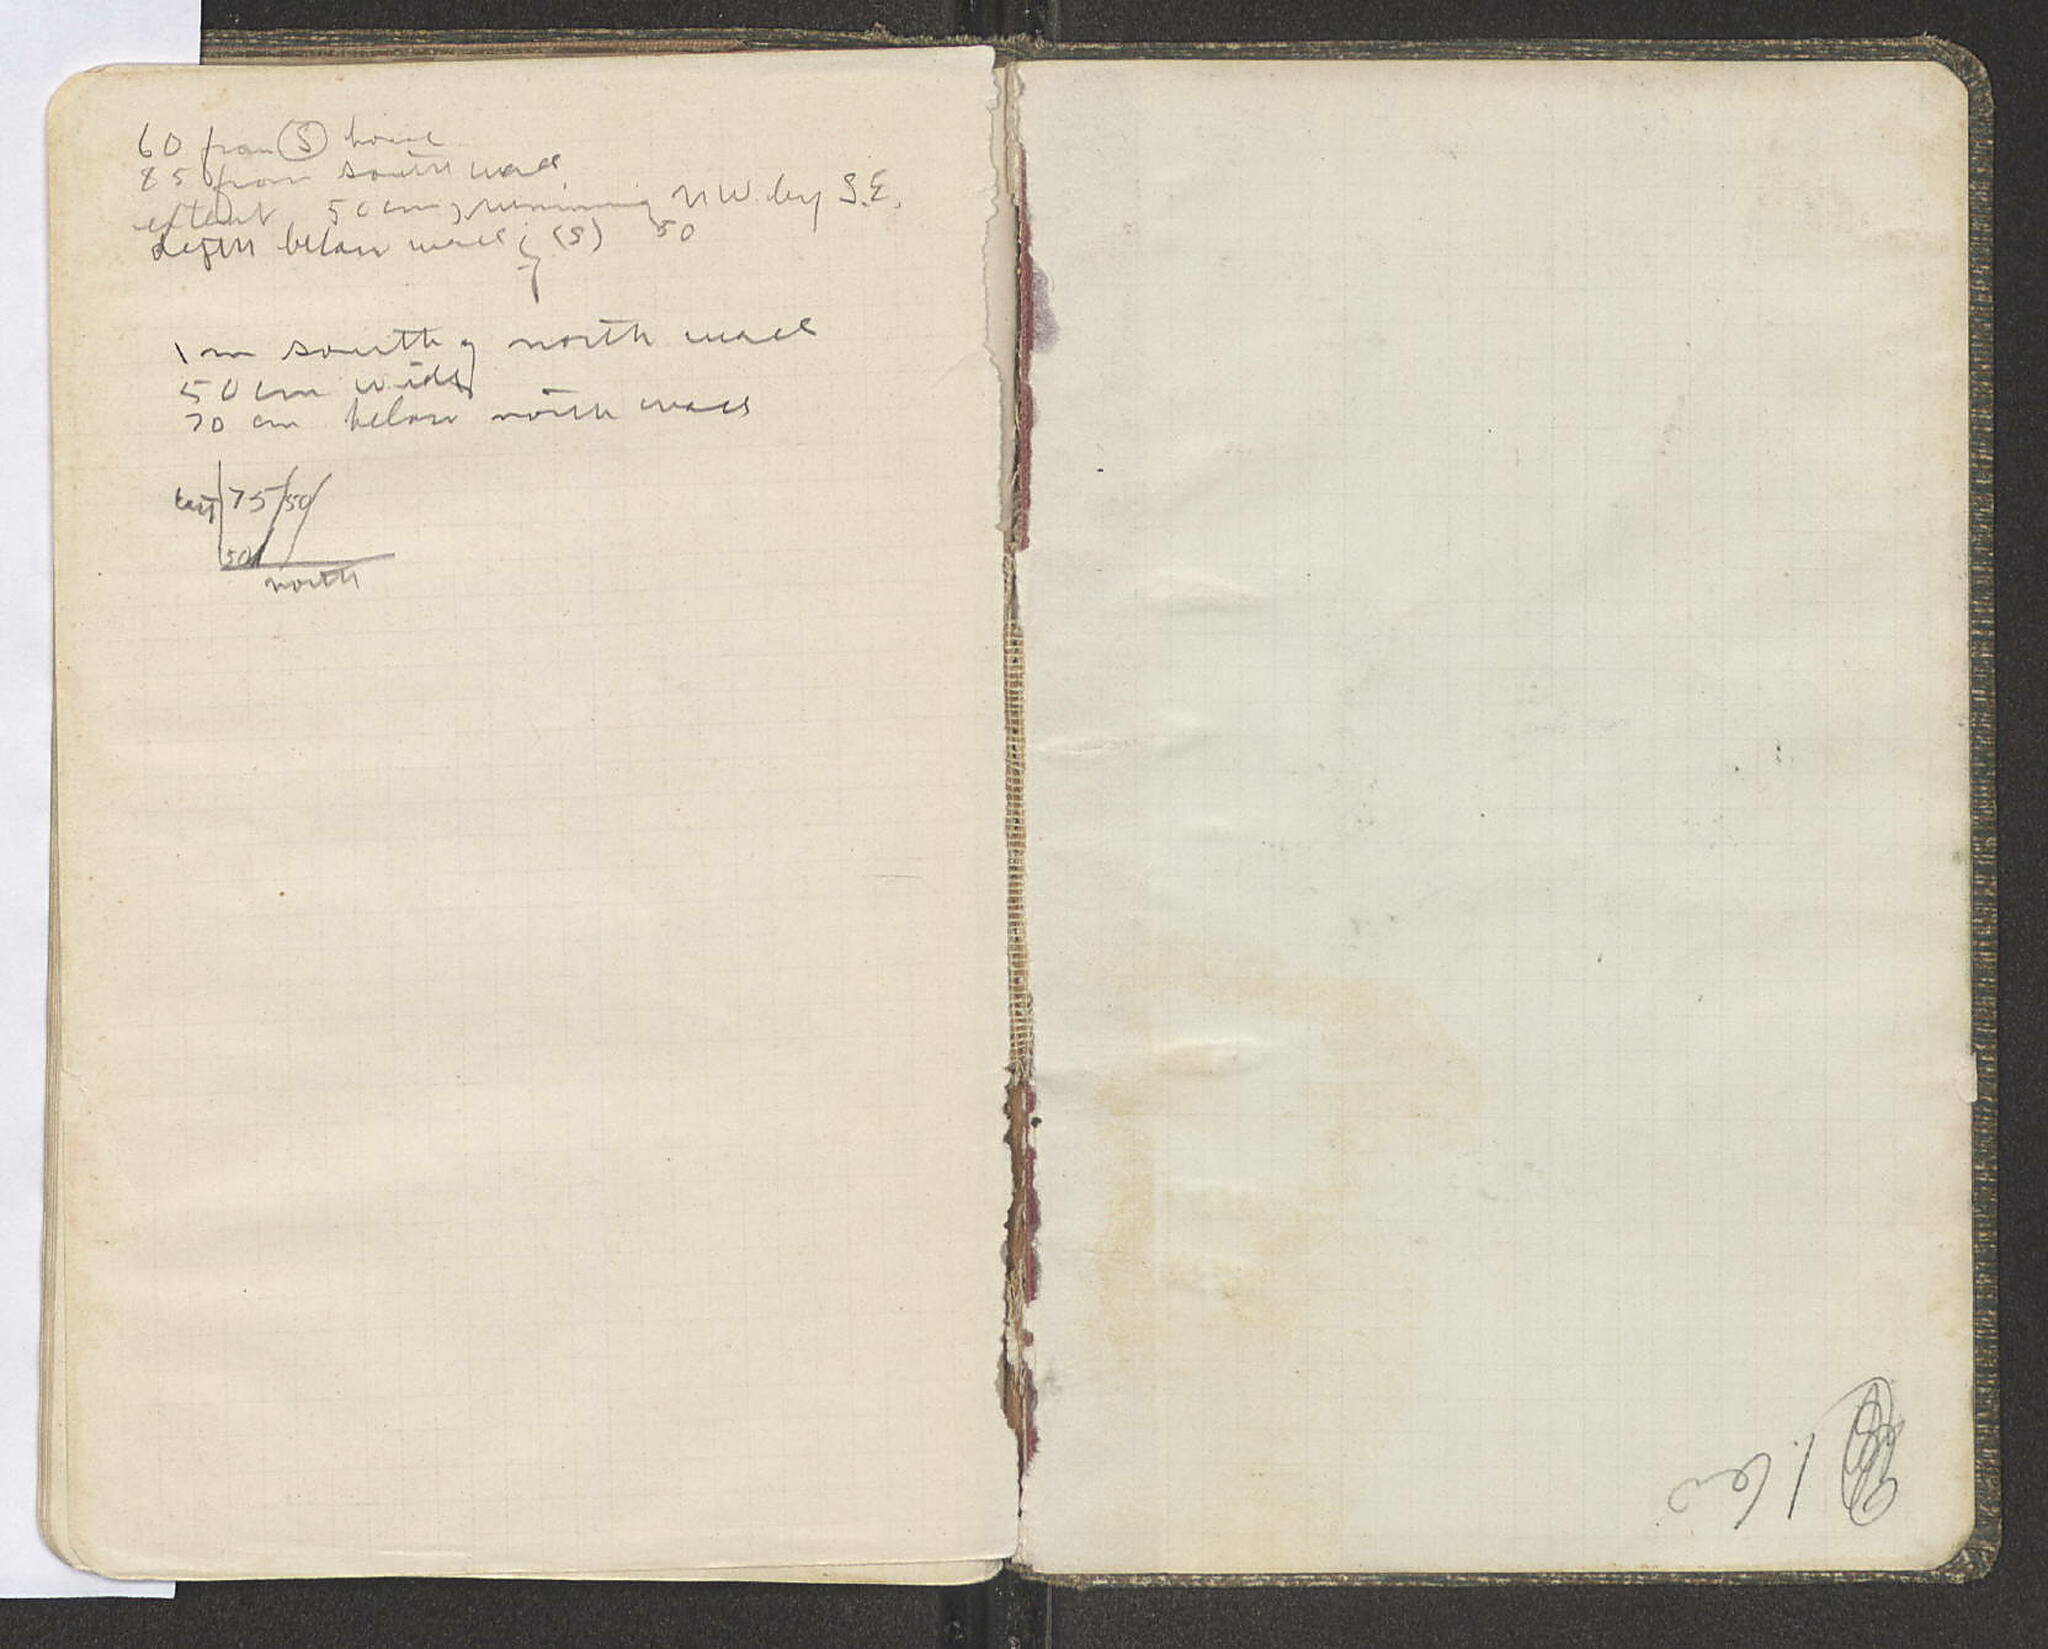 60 from (S) house
85 from south wall
extent 50 cm, running NW by S.E.
depth below wall (S) 50
1 m south of north wall
50 cm wide
70 cm below north wall
east 75 50
50
north